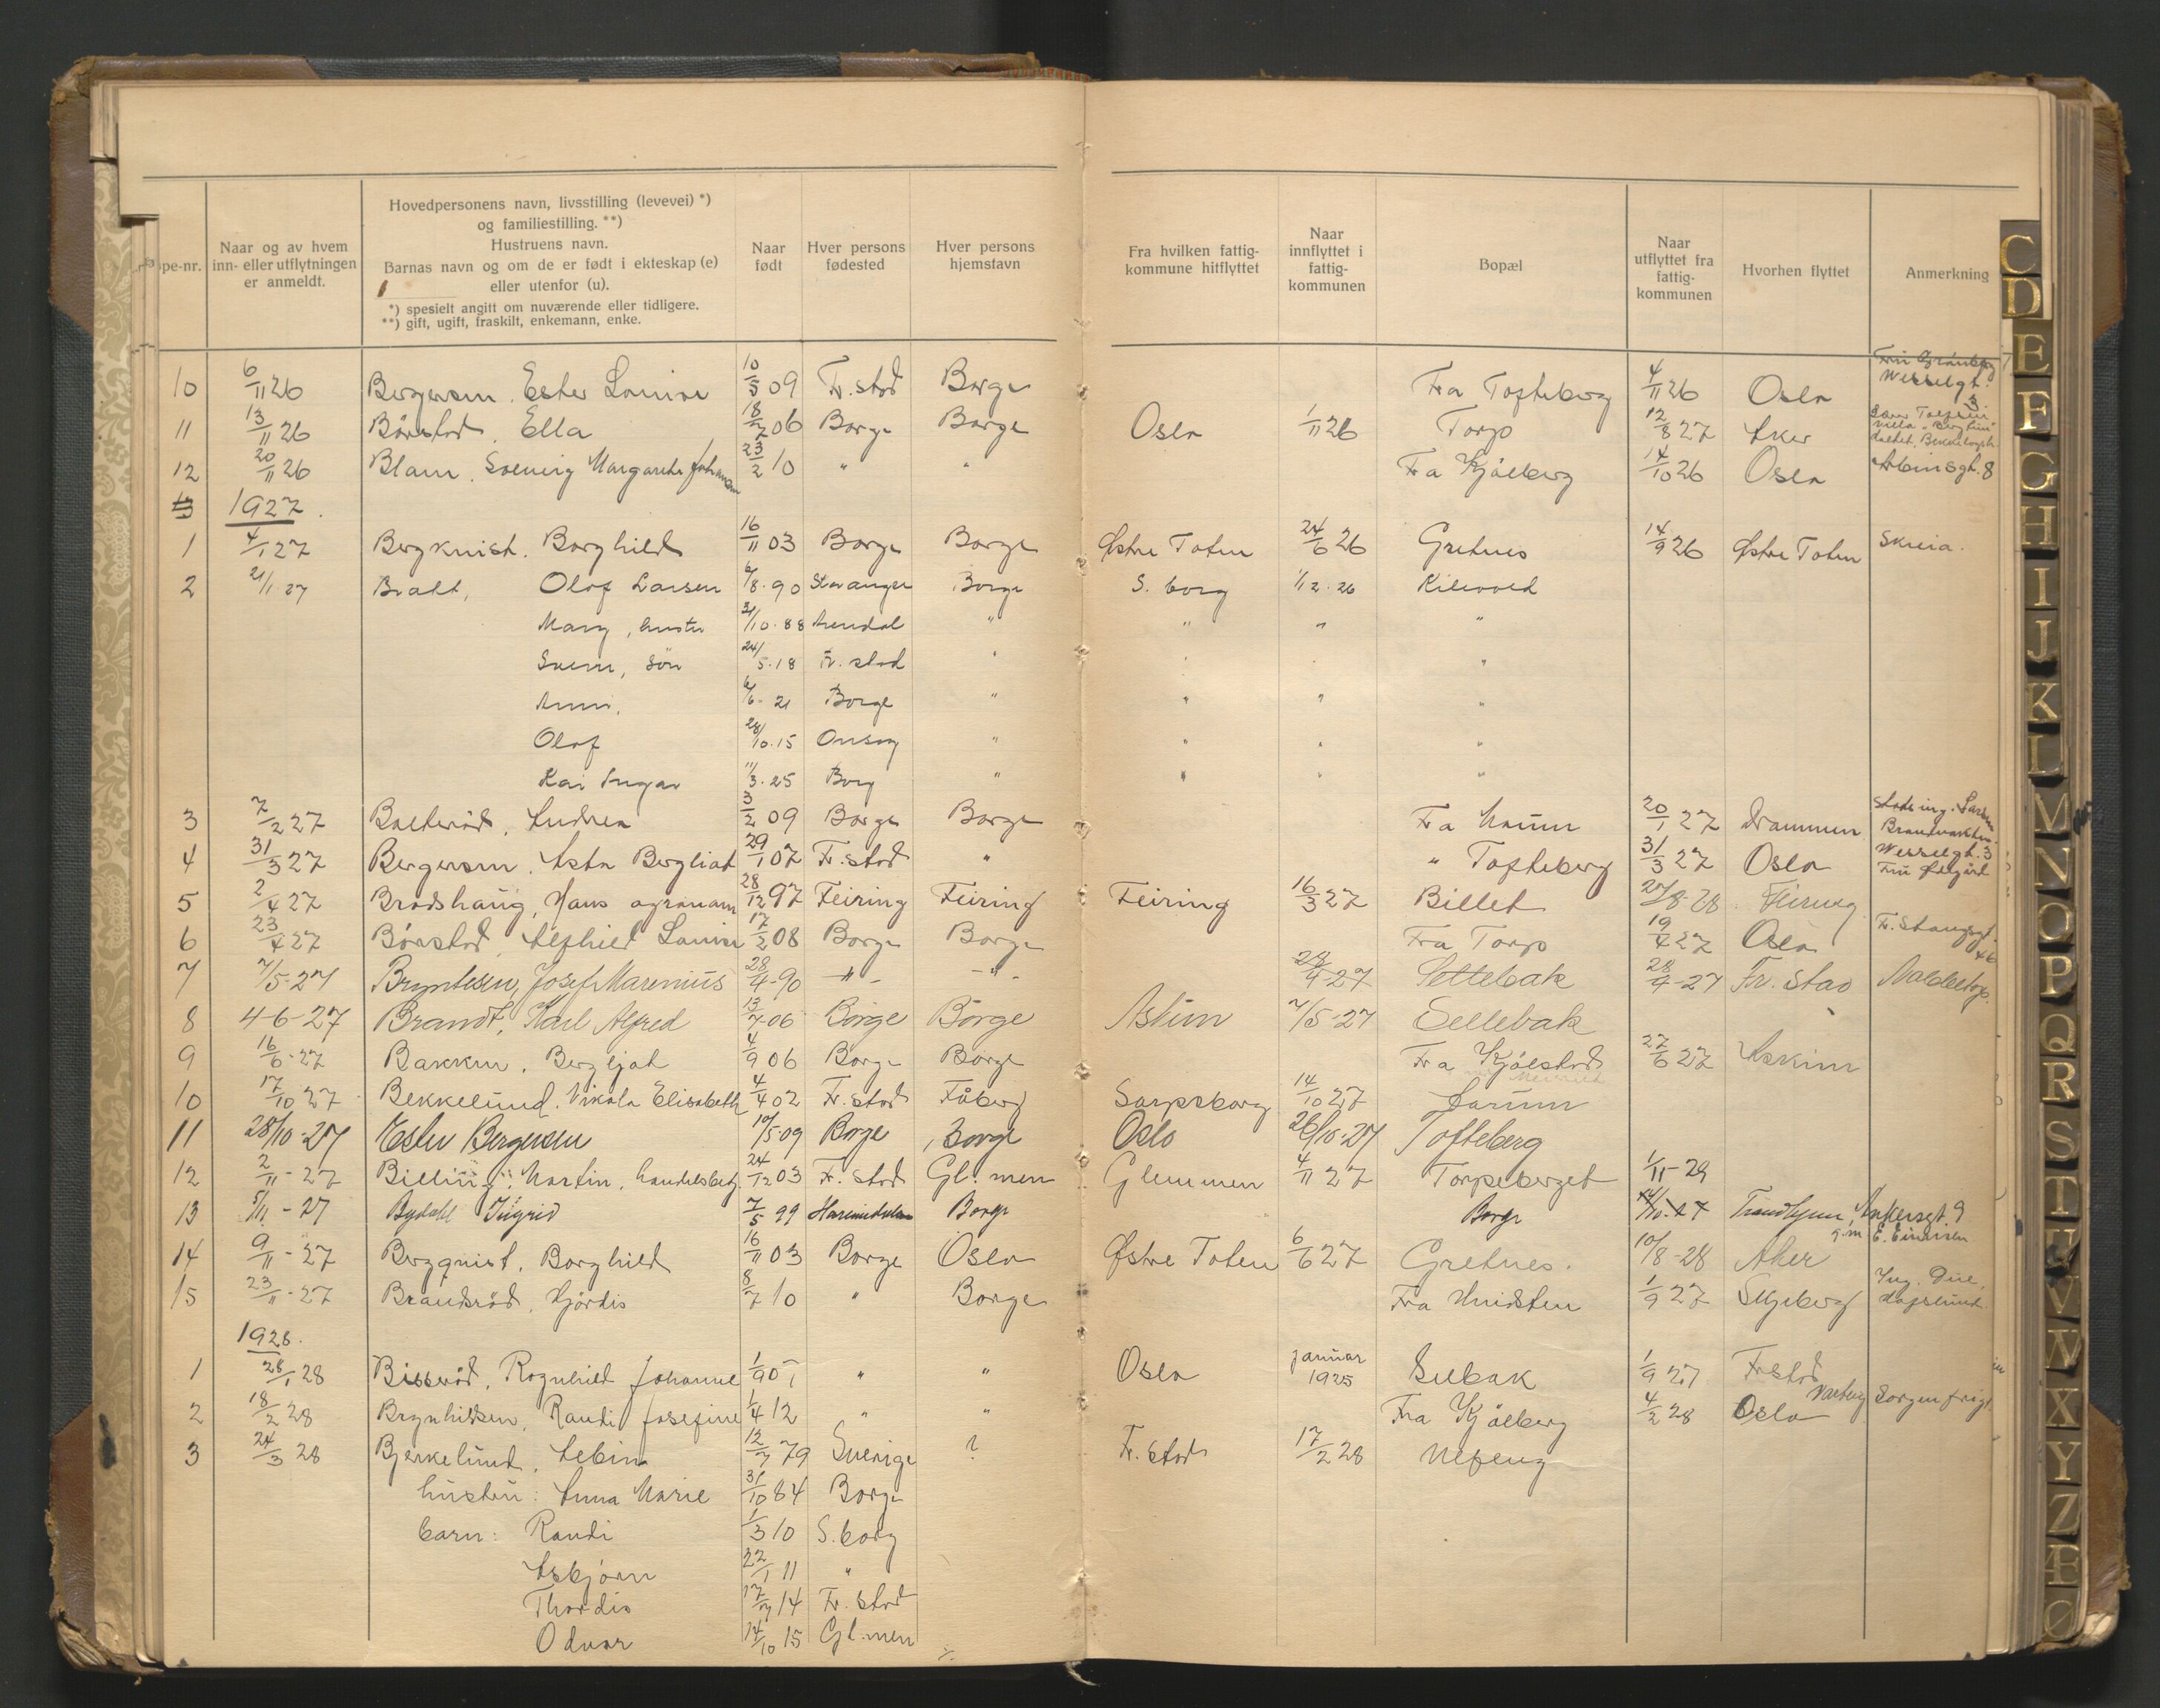 pe-nr.
Naar og av hvem inn- eller utflytningen er anmeldt.
Hovedpersonens navn, livsstilling (levevei) *)
og familiestilling. **)
Hustruens navn.
Barnas navn og om de er født i ekteskap (e)
eller utenfor (u).
*) spesielt angitt om nuværende eller tidligere.
**) gift, ugift, fraskilt, enkemann, enke.
Naar født
Hver persons fødested
Hver persons hjemstavn
Fra hvilken fattig-kommune hitflyttet
Naar innflyttet i fattig-kommunen
Bopæl
Naar utflyttet fra fattig-kommunen
Hvorhen flyttet
Anmerkning
10 6/11 26 Bergersen. Ester Louise 10/5 09 Fr.stad Borge Fra Tofteberg 4/11 26 Oslo Wesselgt. 3
11 13/11 26 Børstad, Ella 18/7 06 Borge Borge Oslo 1/11 26 Torp 12/8 27 Aker
12 20/11 26 Blam. Solveig Margarethe Johansen 23/2 10 " " Fra Kjølberg 14/10 26 Oslo 8
1927.
1 4/1 27 Bergkvist. Borghild 16/11 03 Borge Borge Østre Toten 24/6 26 Gretnes 14/9 26 Østre Toten Skreia.
2 21/1 27 Olaf Larsen 6/8.90 Stavanger Borge S. borg 1/12.26 Kilevold
Mary, hustr 10.88 Arendal " " " "
Svein, Søn 24/5.18 Fr. stad
6/6-21 Borge " " " "
Olaf 28/10.15 Onsøy " " " "
Kai Ingar 11/3.25 Borg " " " "
3 7/2 27 Andrea 3/2 09 Borge Borge Fra Haum 20/1 27 Drammen
4 31/3 27 Bergersen. Asta Bergliot 29/1 07 Fr.stad " " Tofteberg 31/3 27 Oslo Wesselgt. 3
5 2/4 27 Brodshaug, Hans agronom 28/12 97 Feiring Feiring Feiring 16/3 27 Billet 8-28 Feiring
6 23/4 27 Børstad, Alfhild Louise 17/2 08 Borge Borge Fra Torp 19/4 27 Oslo
7 7/5-27 Bryntesen, Josef Marenius 28/4-90 -"- -"- 28/4-27 Sellebak 28/4-27 Fr. stad
8 4-6-27 Brandt, Karl Alfred 13/7-06 Borge Borge Askim 7/5-27 Sellebak
9 16/6-27 Bakken. Bergljot 4/9 06 Borge Borge Fra Kjølstad 27/6 27 Askim
10 17/10 27 Bekkelund. Vikola Elisabeth 4/4 02 Fr. stad Fåberg Sarpsborg 14/10 27
11 28/10-27 Ester Bergersen 10/5-09 Borge Borge Oslo 26/10-27 Tofteberg
12 2/11-27 Martin. handelsbetj. 24/12 03 Fr. stad Gl.men Glemmen 4/11 27 Torpeberget 1/11-29
13 5/11-27 Bydahl Ingrid 7/5 99 Borge Borge Trondhjem, Ankersgt. 9
14 9/11-27 Bergquist. Borghild 16/11 03 Borge Oslo Østre Toten 6/6 27 Gretnes. 10/8-28 Aker
15 23/11-27 Brandsrød, Hjørdis 8/7 10 " Borge Fra Hvidsten 1/9 27 Skjeberg Hafslund.
1928.
1 28/1 28 Ragnhild Johanne 1/9 05 " " Oslo januar 1925 1/9 27 Frstad
2 18/2 28 Brynhildsen. Randi Josefine 1/4 12 " " Fra Kjølberg 4/2 28 Oslo
3 24/3 28 Bjerkelund. Albin 12/7 79 Sverige ? Fr. stad 17/2 28
hustru: Anna Marie 31/10 84 Borge
barn: Randi 1/3 10 S. borg
Asbjørn 22/1 11 "
Thordis 17/7 14 Fr. stad
Odvar 14/10 15 Gl.men
C
D
E
F
G
H
I
J
K
L
M
N
O
P
Q
R
S
T
U
V
W
X
Y
Z
Æ
Ø